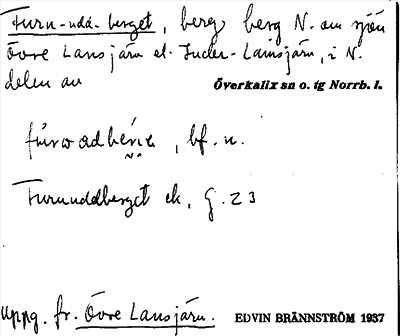 Furu-udd-berget, berg berg N. om sjön
Övre Lansjärv el. Inder-Lansjärv, i N.
delen av Överkalix sn o. tg Norrb. l.
, bf. n.
Furuuddberget ek, G. 23
Uppg. fr. Övre Lansjärv. EDVIN BRÄNNSTRÖM 1937